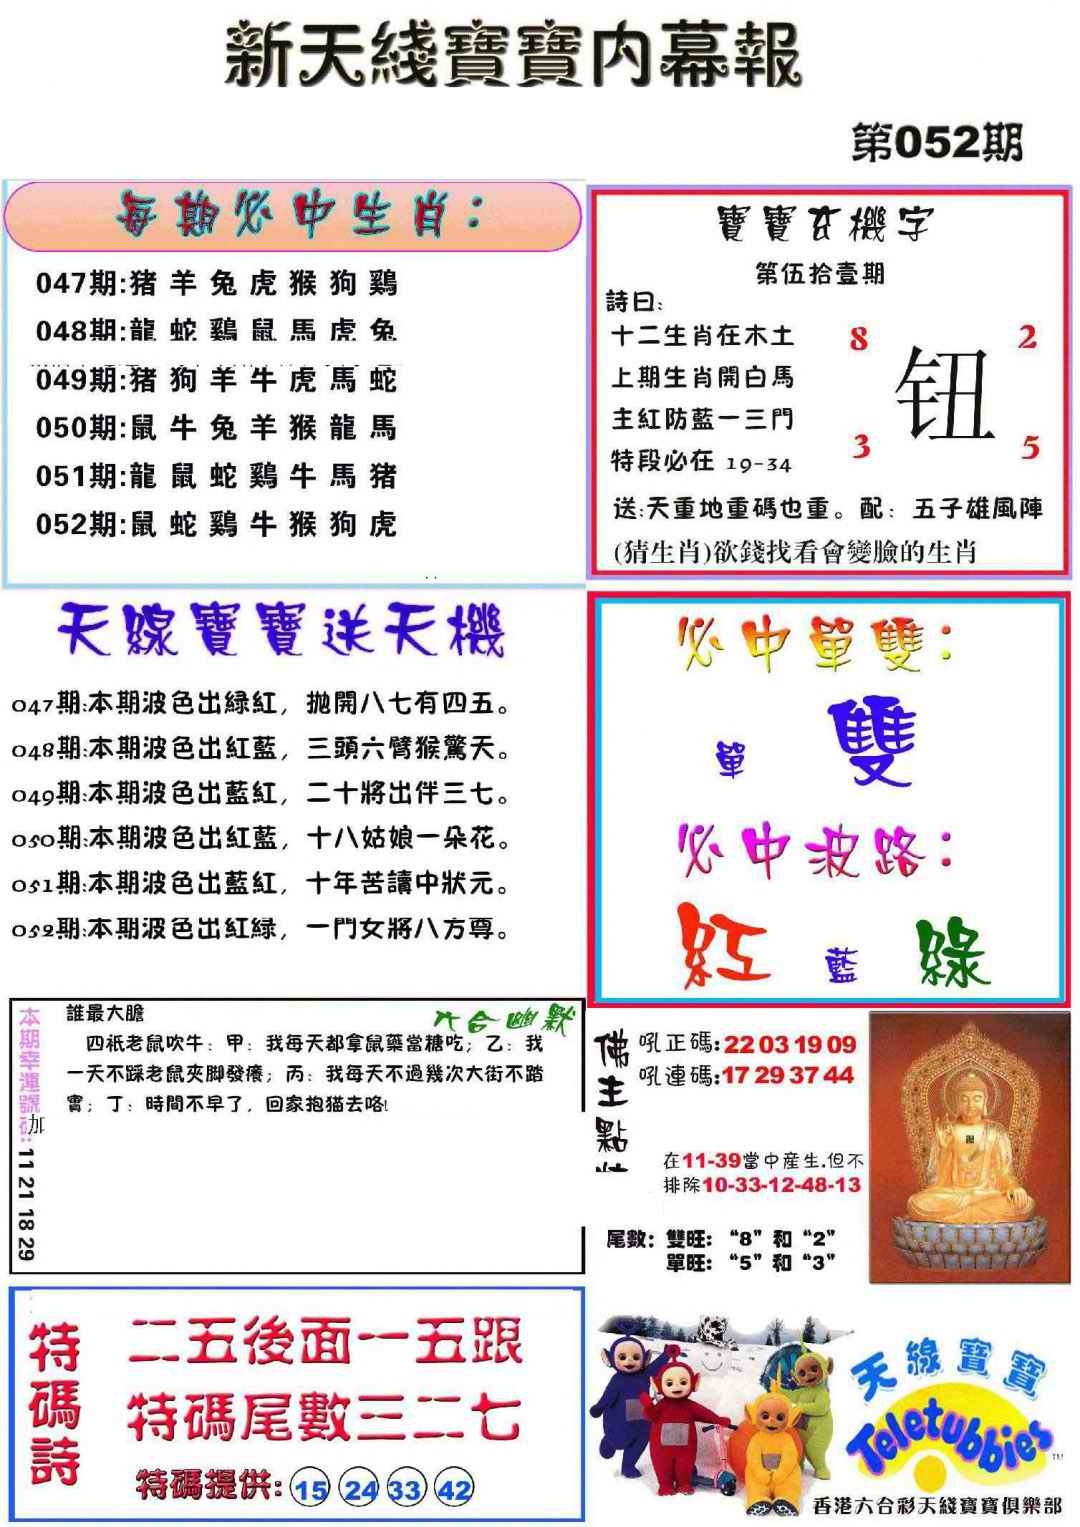 新天綫寶寶内幕報
第052期
每期必中生肖：
047期:猪羊兔虎猴狗鷄
048期:龍蛇鷄鼠馬虎兔
049期:猪狗羊牛虎馬蛇
050期:鼠牛兔羊猴龍馬
051期:龍鼠蛇鷄牛馬猪
052期:鼠蛇鷄牛猴狗虎
寶寶玄機字
第伍拾壹期
詩曰:
十二生肖在木土
上期生肖開白馬
主紅防藍一三門
特段必在 19-34
8
2
钮
3
5
送:天重地重碼也重。配：五子雄風陣
(猜生肖)欲錢找看會變臉的生肖
天線寶寶送天機
047期:本期波色出緑紅，抛開八七有四五。
048期:本期波色出紅藍，三頭六臂猴驚天。
049期:本期波色出藍紅，二十將出伴三七。
050期:本期波色出紅藍，十八姑娘一朵花。
051期:本期波色出藍紅，十年苦讀中狀元。
052期:本期波色出紅緑，一門女將八方尊。
必中單雙：
單 雙
必中波路：
紅 藍 綠
本期幸運號碼:
加
11 21 18 29
六合幽默
誰最大膽
四衹老鼠吹牛：甲：我每天都拿鼠藥當糖吃；乙：我
一天不踩老鼠夾脚發癢；丙：我每天不過幾次大街不踏
實；丁：時間不早了，回家抱猫去咯!
佛主點
吼正碼:22 03 19 09
吼連碼:17 29 37 44
在11-39當中産生.但不
排除10-33-12-48-13
尾數：雙旺：“8”和“2”
單旺：“5”和“3”
特碼詩
二五後面一五跟
特碼尾數三二七
特碼提供: 15 24 33 42
天線寶寶
Teletubbies
TM
香港六合彩天綫寶寶俱樂部